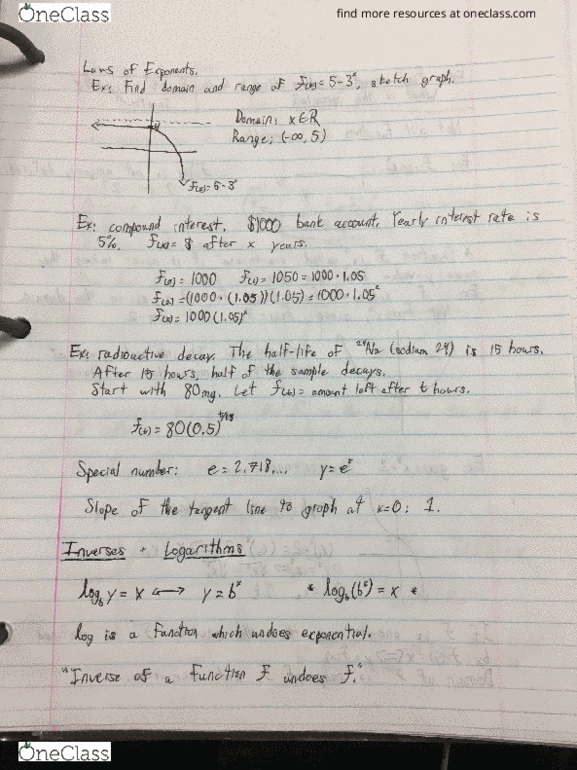 OneClass
find more resources at oneclass.com
Laws of Exponents.
Ex: Find domain and range of f(x) = 5-3ˣ, sketch graph.
Domain: x∈R
Range: (-∞, 5)
f(x) = 5-3ˣ
Ex: compound interest. $1000 bank account. Yearly interest rate is
5%. f(x) = $ after x years.
f(0) = 1000 f(1) = 1050 = 1000·1.05
f(2) = (1000·(1.05))(1.05) = 1000·1.05²
f(x) = 1000(1.05)ˣ
Ex: radioactive decay. The half-life of ²⁴Na (sodium 24) is 15 hours.
After 15 hours, half of the sample decays.
Start with 80mg. Let f(t) = amount left after t hours.
f(t) = 80(0.5)^t/15
Special number: e = 2.718... y = eˣ
Slope of the tangent line to graph at x=0: 1.
Inverses + Logarithms
log_b y = x ⟷ y = bˣ * log_b(bˣ) = x *
log is a function which undoes exponential.
"Inverse of a function f undoes f."
OneClass